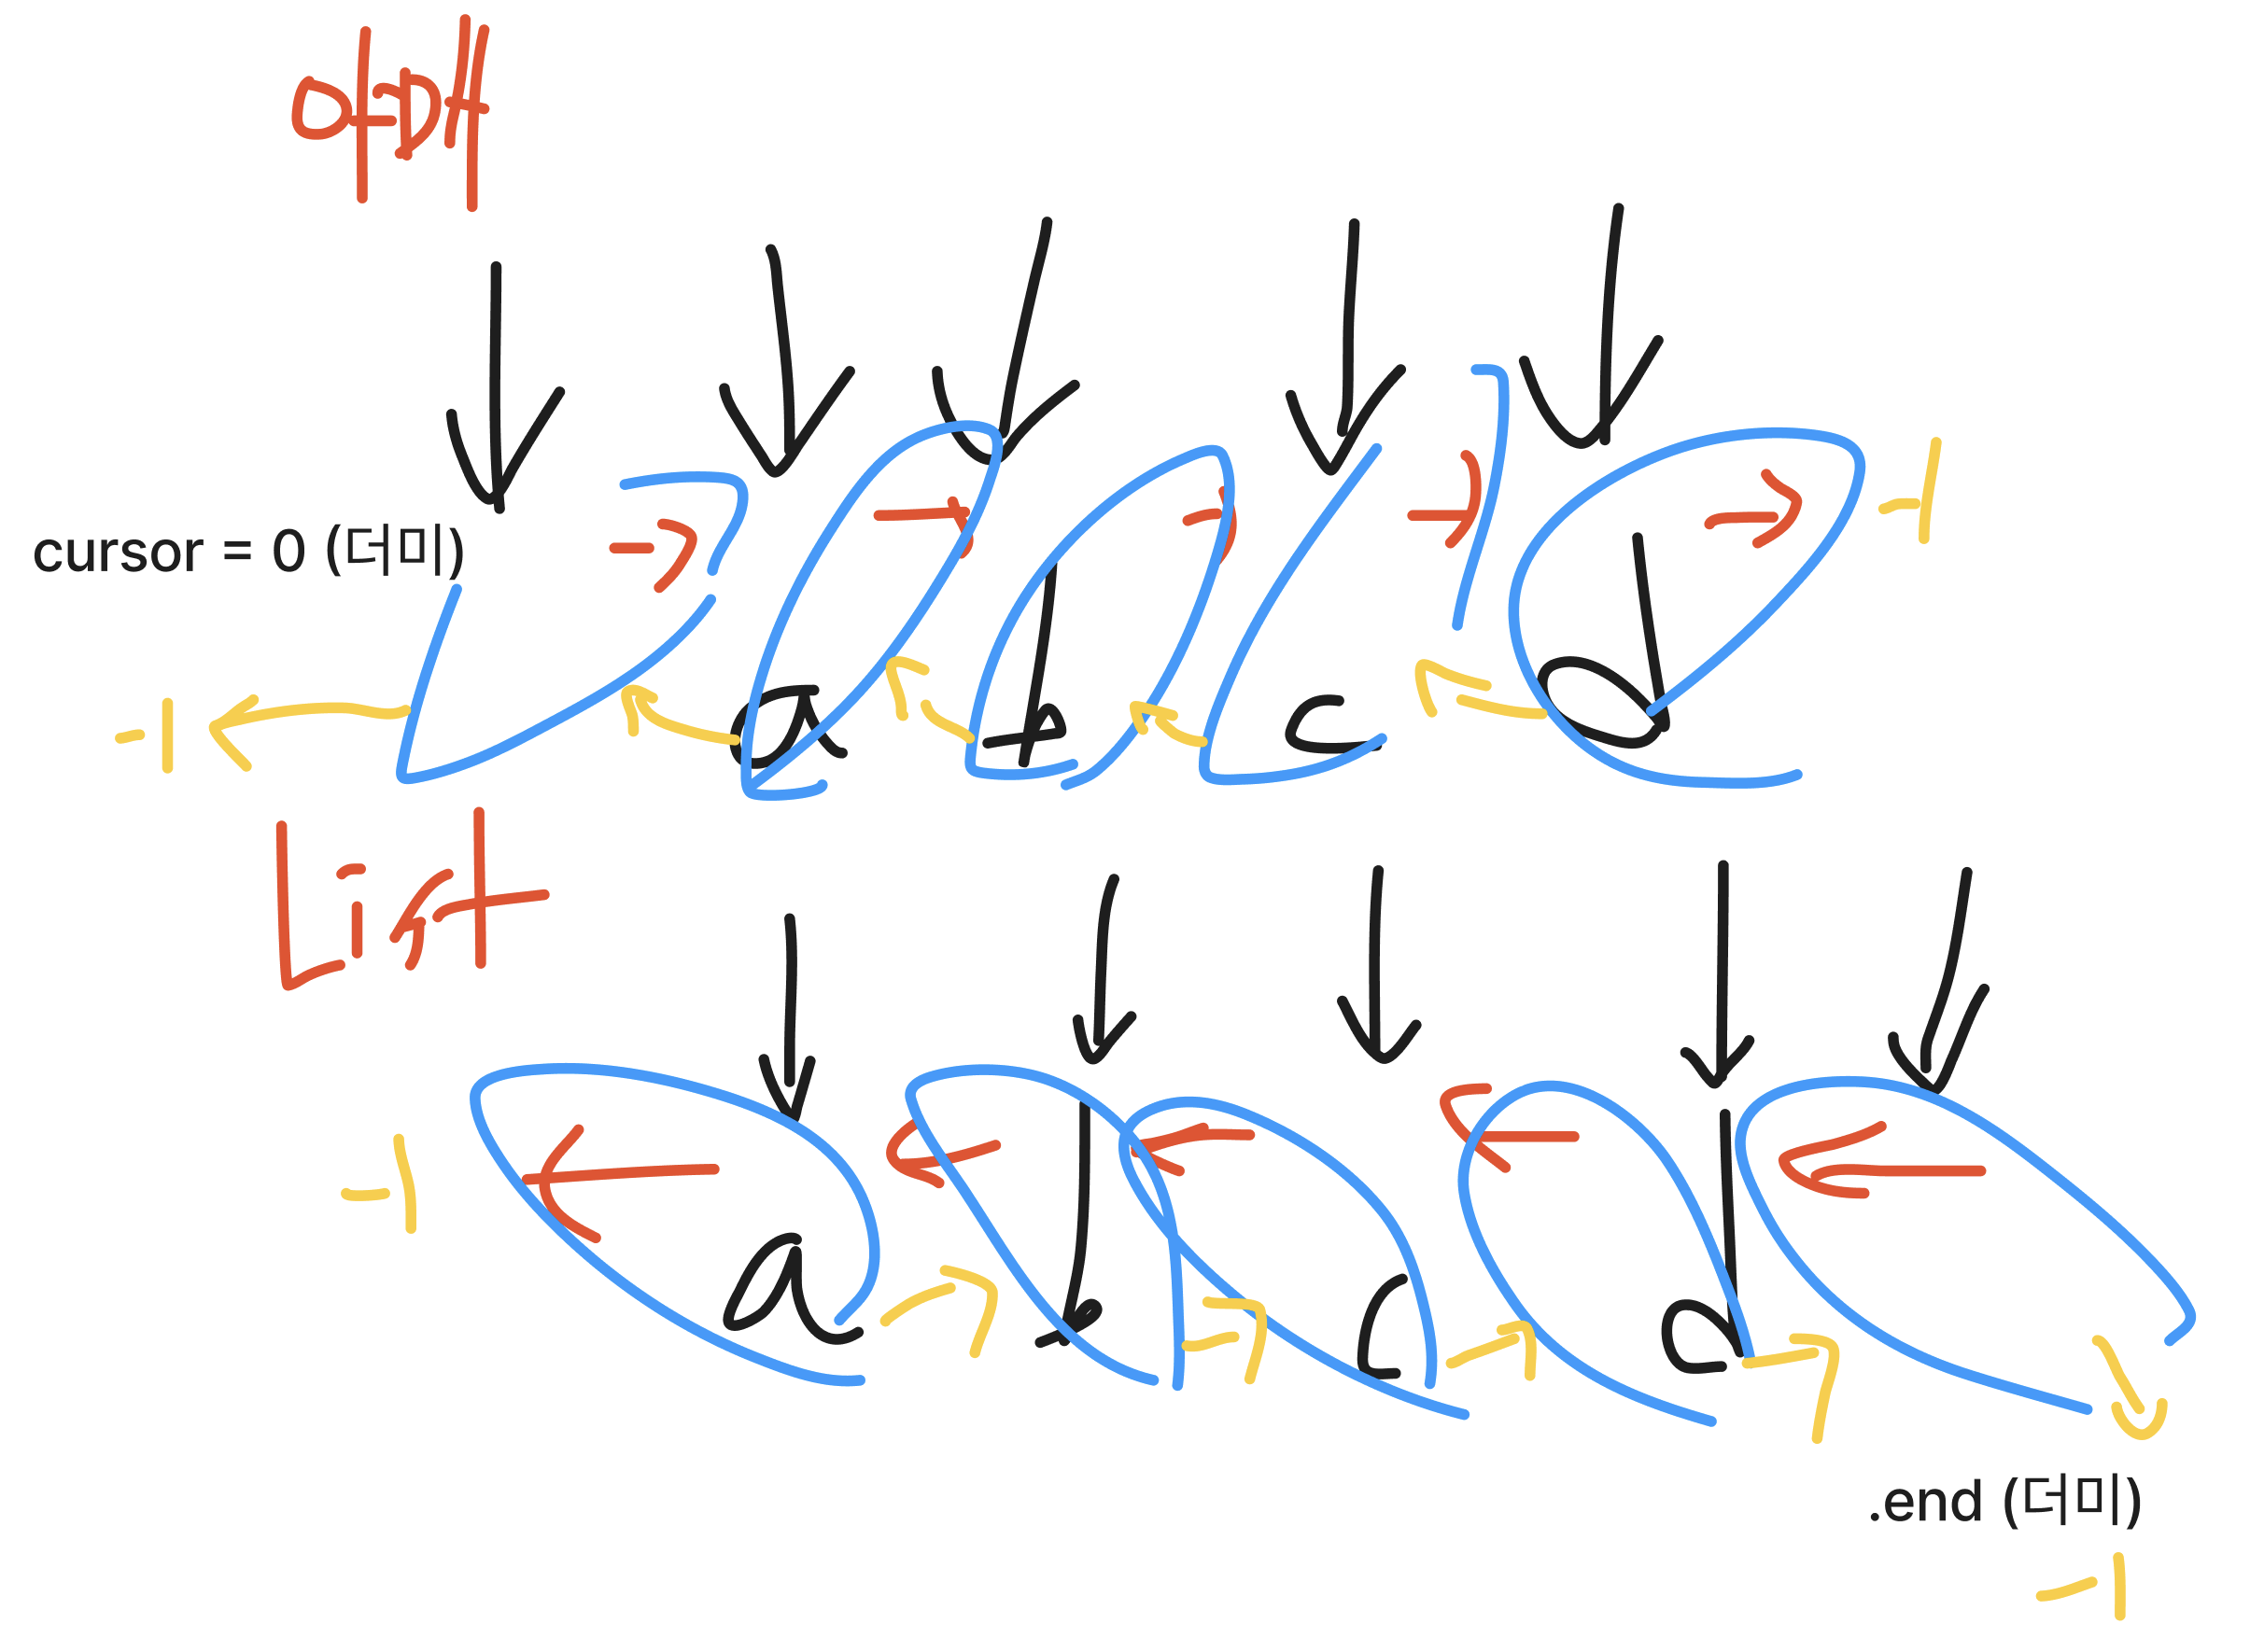 야매
cursor = 0 (더미)
-1
a b c d
-1
List
-1
a b c d
.end (더미)
-1